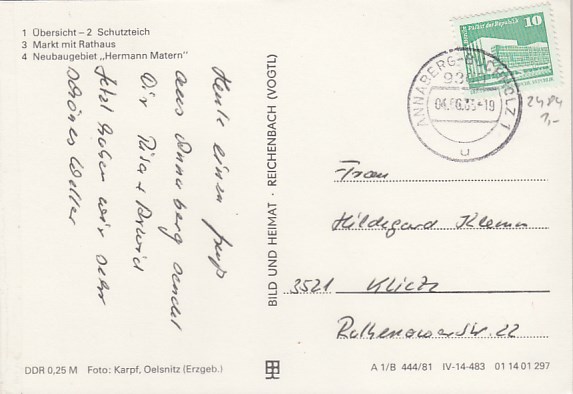 1 Übersicht – 2 Schutzteich
3 Markt mit Rathaus
4 Neubaugebiet „Hermann Matern"
Heute einen
aus Annaberg sendet
Dir Rita + Arwid
Jetzt haben wir sehr
schönes Wetter
BILD UND HEIMAT · REICHENBACH (VOGTL)
10
ANNABERG-BUCHHOLZ 1
04.8
-19
u
2484
1,-
Frau
Hildegard Klemm
3521 Klietz
Rathenower Str. 22
DDR 0,25 M Foto: Karpf, Oelsnitz (Erzgeb.)
A 1/B 444/81 IV-14-483 01 14 01 297